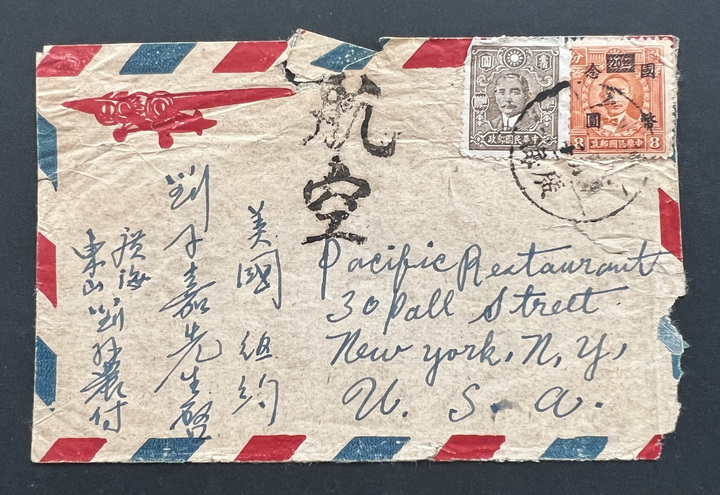 航空
Pacific Restaurant
30 Pall Street
New york, N, Y,
U. S. a.
美國 紐約
劉子嘉先生啓
廣海
東山劉
付
圓
中華民國郵政
國
念
幣
圓
分
8
中華民國郵政
8
廣